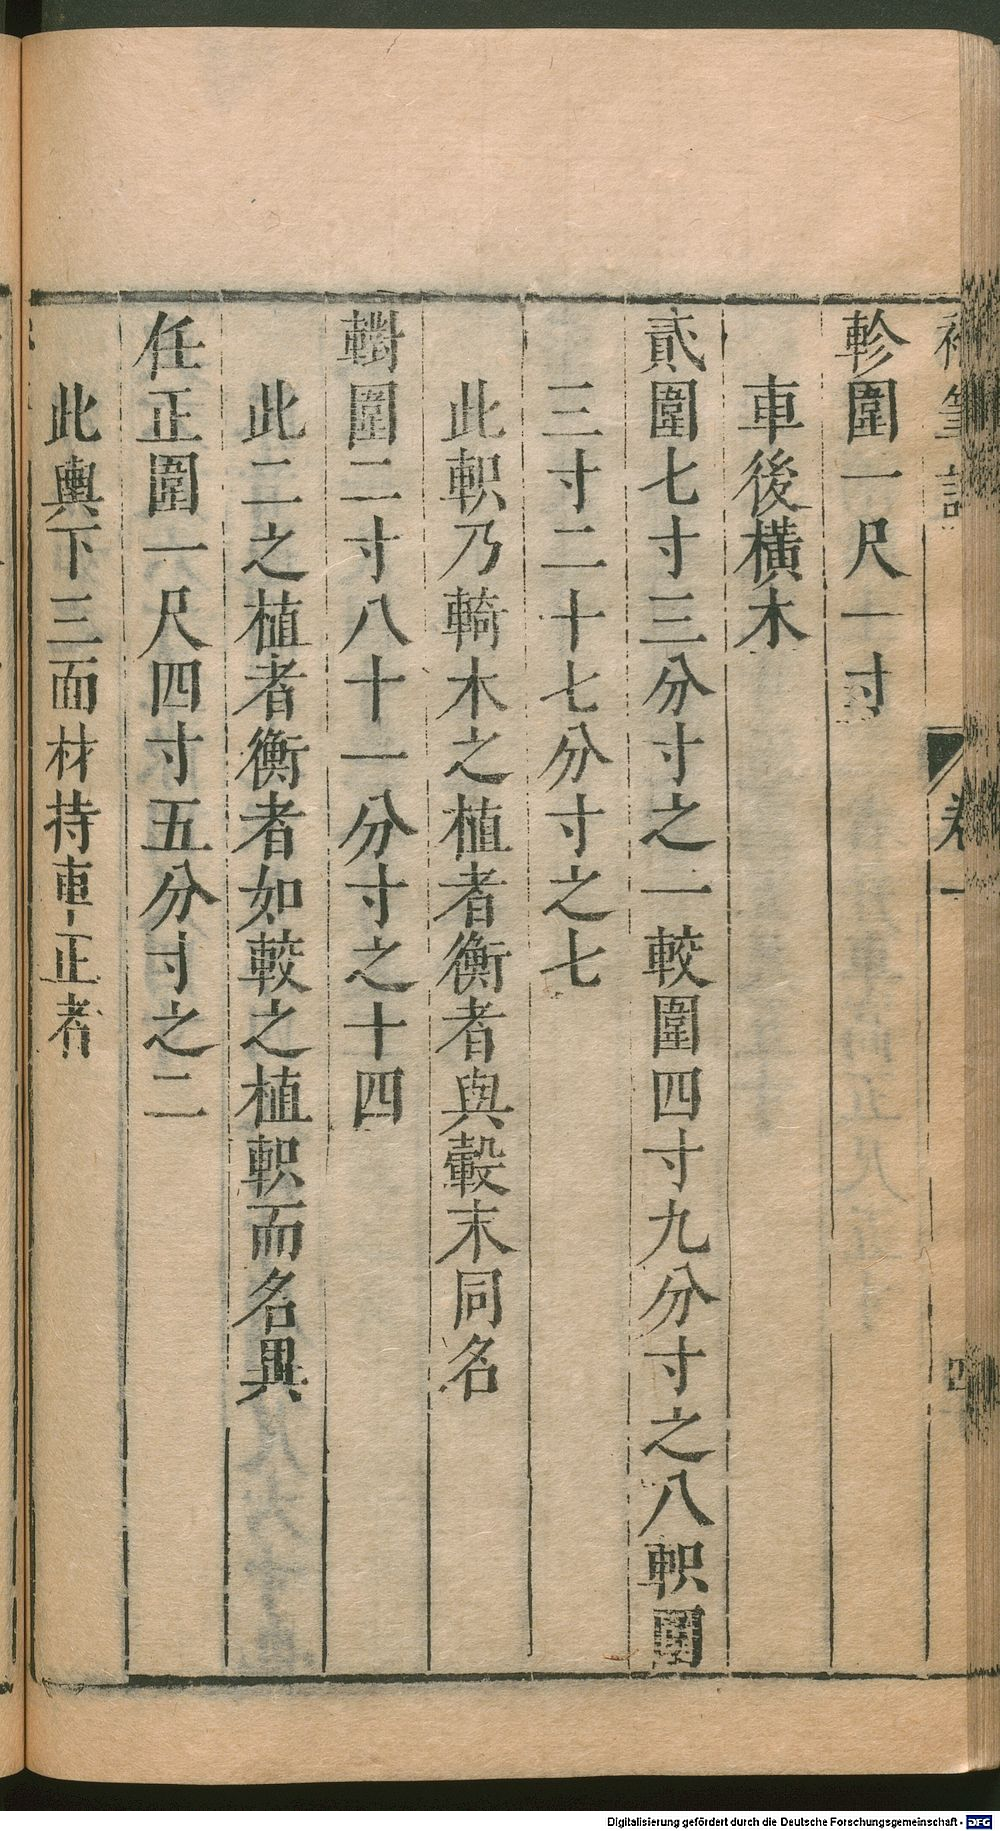 卷一
軫圍一尺一寸
車後橫木
貳圍七寸三分寸之一較圍四寸九分寸之八軹圍
三寸二十七分寸之七
此軹乃輢木之植者衡者與轂末同名
轛圍二寸八十一分寸之十四
此二之植者衡者如較之植軹而名異
任正圍一尺四寸五分寸之二
此輿下三面材持車正者
Digitalisierung gefördert durch die Deutsche Forschungsgemeinschaft - DFG